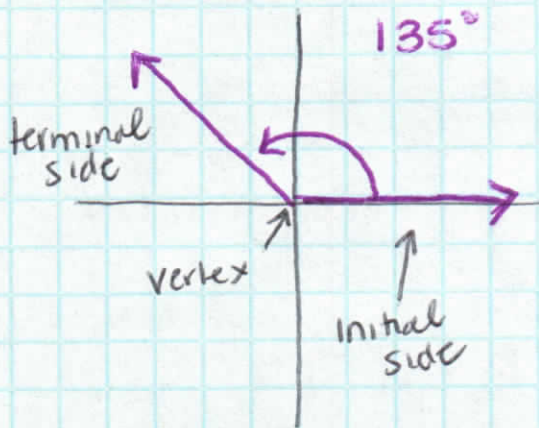 135°
terminal
side
vertex
initial
side